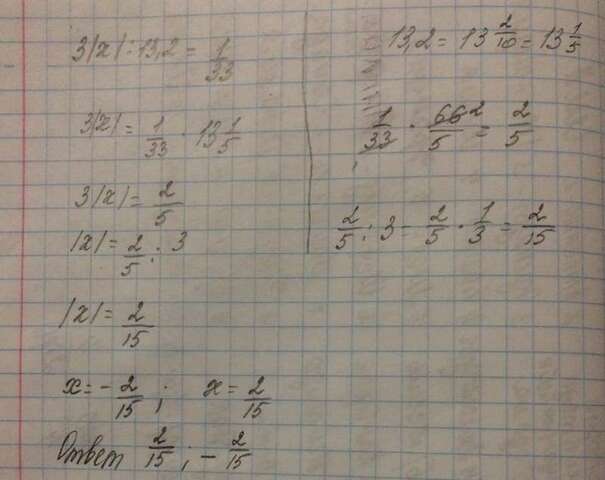 3|x| : 13,2 = 1/33
3|x| = 1/33 · 13 1/5
3|x| = 2/5
|x| = 2/5 : 3
|x| = 2/15
x = - 2/15 ; x = 2/15
Ответ 2/15 ; - 2/15
13,2 = 13 2/10 = 13 1/5
1/33 · 66 2/5 = 2/5
2/5 : 3 = 2/5 · 1/3 = 2/15